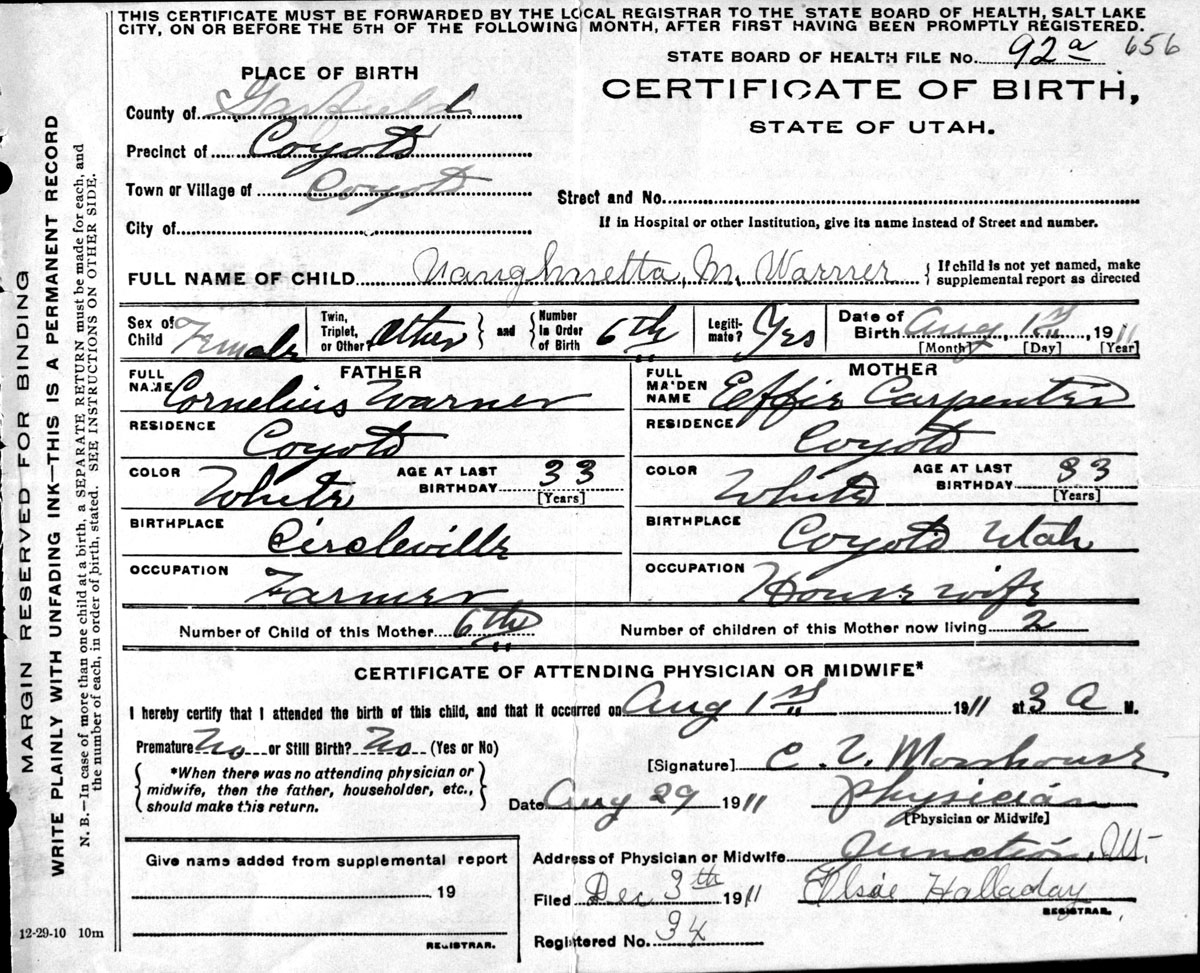 THIS CERTIFICATE MUST BE FORWARDED BY THE LOCAL REGISTRAR TO THE STATE BOARD OF HEALTH, SALT LAKE
CITY, ON OR BEFORE THE 5TH OF THE FOLLOWING MONTH, AFTER FIRST HAVING BEEN PROMPTLY REGISTERED.
STATE BOARD OF HEALTH FILE NO. 92a 656
PLACE OF BIRTH
CERTIFICATE OF BIRTH,
STATE OF UTAH.
County of Garfield
Precinct of Coyoto
Town or Village of Coyoto
Street and No.
City of
If in Hospital or other Institution, give its name instead of Street and number.
FULL NAME OF CHILD Vaughnetta, M. Warner { If child is not yet named, make supplemental report as directed
Sex of Child Female
Twin, Triplet, or Other? Other } and { Number in Order of Birth 6th
Legitimate? Yes
Date of Birth Aug 1st, 1911
[Month] [Day] [Year]
FATHER
FULL NAME Cornelius Warner
RESIDENCE Coyoto
COLOR White AGE AT LAST BIRTHDAY 33 [Years]
BIRTHPLACE Circleville
OCCUPATION Farmer
MOTHER
FULL MAIDEN NAME Effie Carpenter
RESIDENCE Coyoto
COLOR White AGE AT LAST BIRTHDAY 33 [Years]
BIRTHPLACE Coyoto Utah
OCCUPATION House wife
Number of Child of this Mother 6th Number of children of this Mother now living 2
CERTIFICATE OF ATTENDING PHYSICIAN OR MIDWIFE*
I hereby certify that I attended the birth of this child, and that it occurred on Aug 1st 1911 at 3 A M.
Premature No or Still Birth? No (Yes or No)
{ *When there was no attending physician or midwife, then the father, householder, etc., should make this return. }
[Signature] C. V. Morehouse
Date Aug 29 1911 Physician
[Physician or Midwife]
Address of Physician or Midwife Junction, Ut.
Give name added from supplemental report
19
REGISTRAR.
Filed Dec 3th 1911 Elsie Halladay
REGISTRAR.
Registered No. 34
12-29-10 10m
MARGIN RESERVED FOR BINDING
WRITE PLAINLY WITH UNFADING INK—THIS IS A PERMANENT RECORD
N. B.—In case of more than one child at a birth, a SEPARATE RETURN must be made for each, and
the number of each, in order of birth, stated. SEE INSTRUCTIONS ON OTHER SIDE.